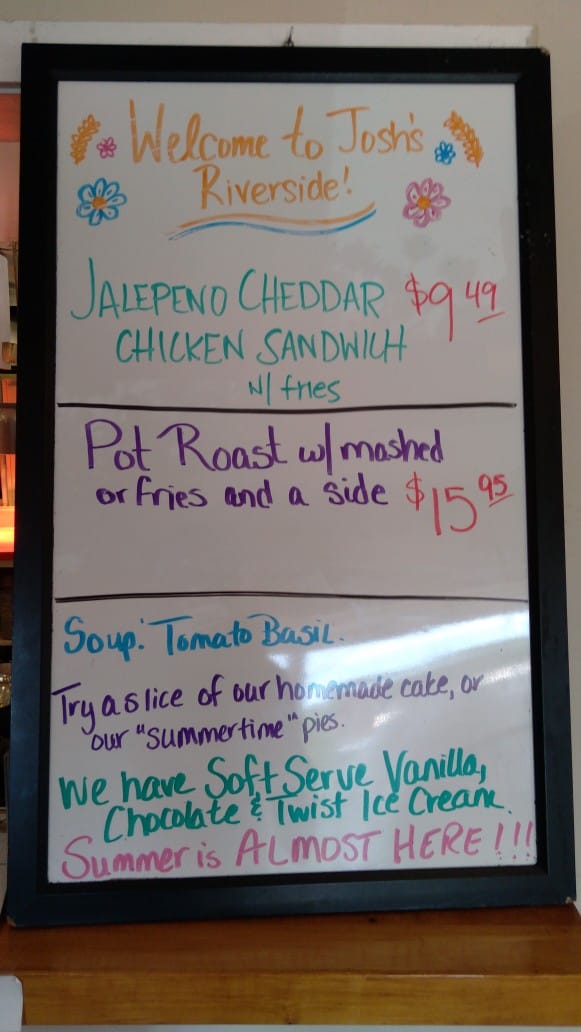 Welcome to Josh's
Riverside!
JALEPENO CHEDDAR $9 49
CHICKEN SANDWICH
w/ fries
Pot Roast w/ mashed
or fries and a side $15 95
Soup: Tomato Basil.
Try a slice of our homemade cake, or
our "summertime" pies.
We have Soft Serve Vanilla,
Chocolate & Twist Ice Cream.
Summer is ALMOST HERE!!!